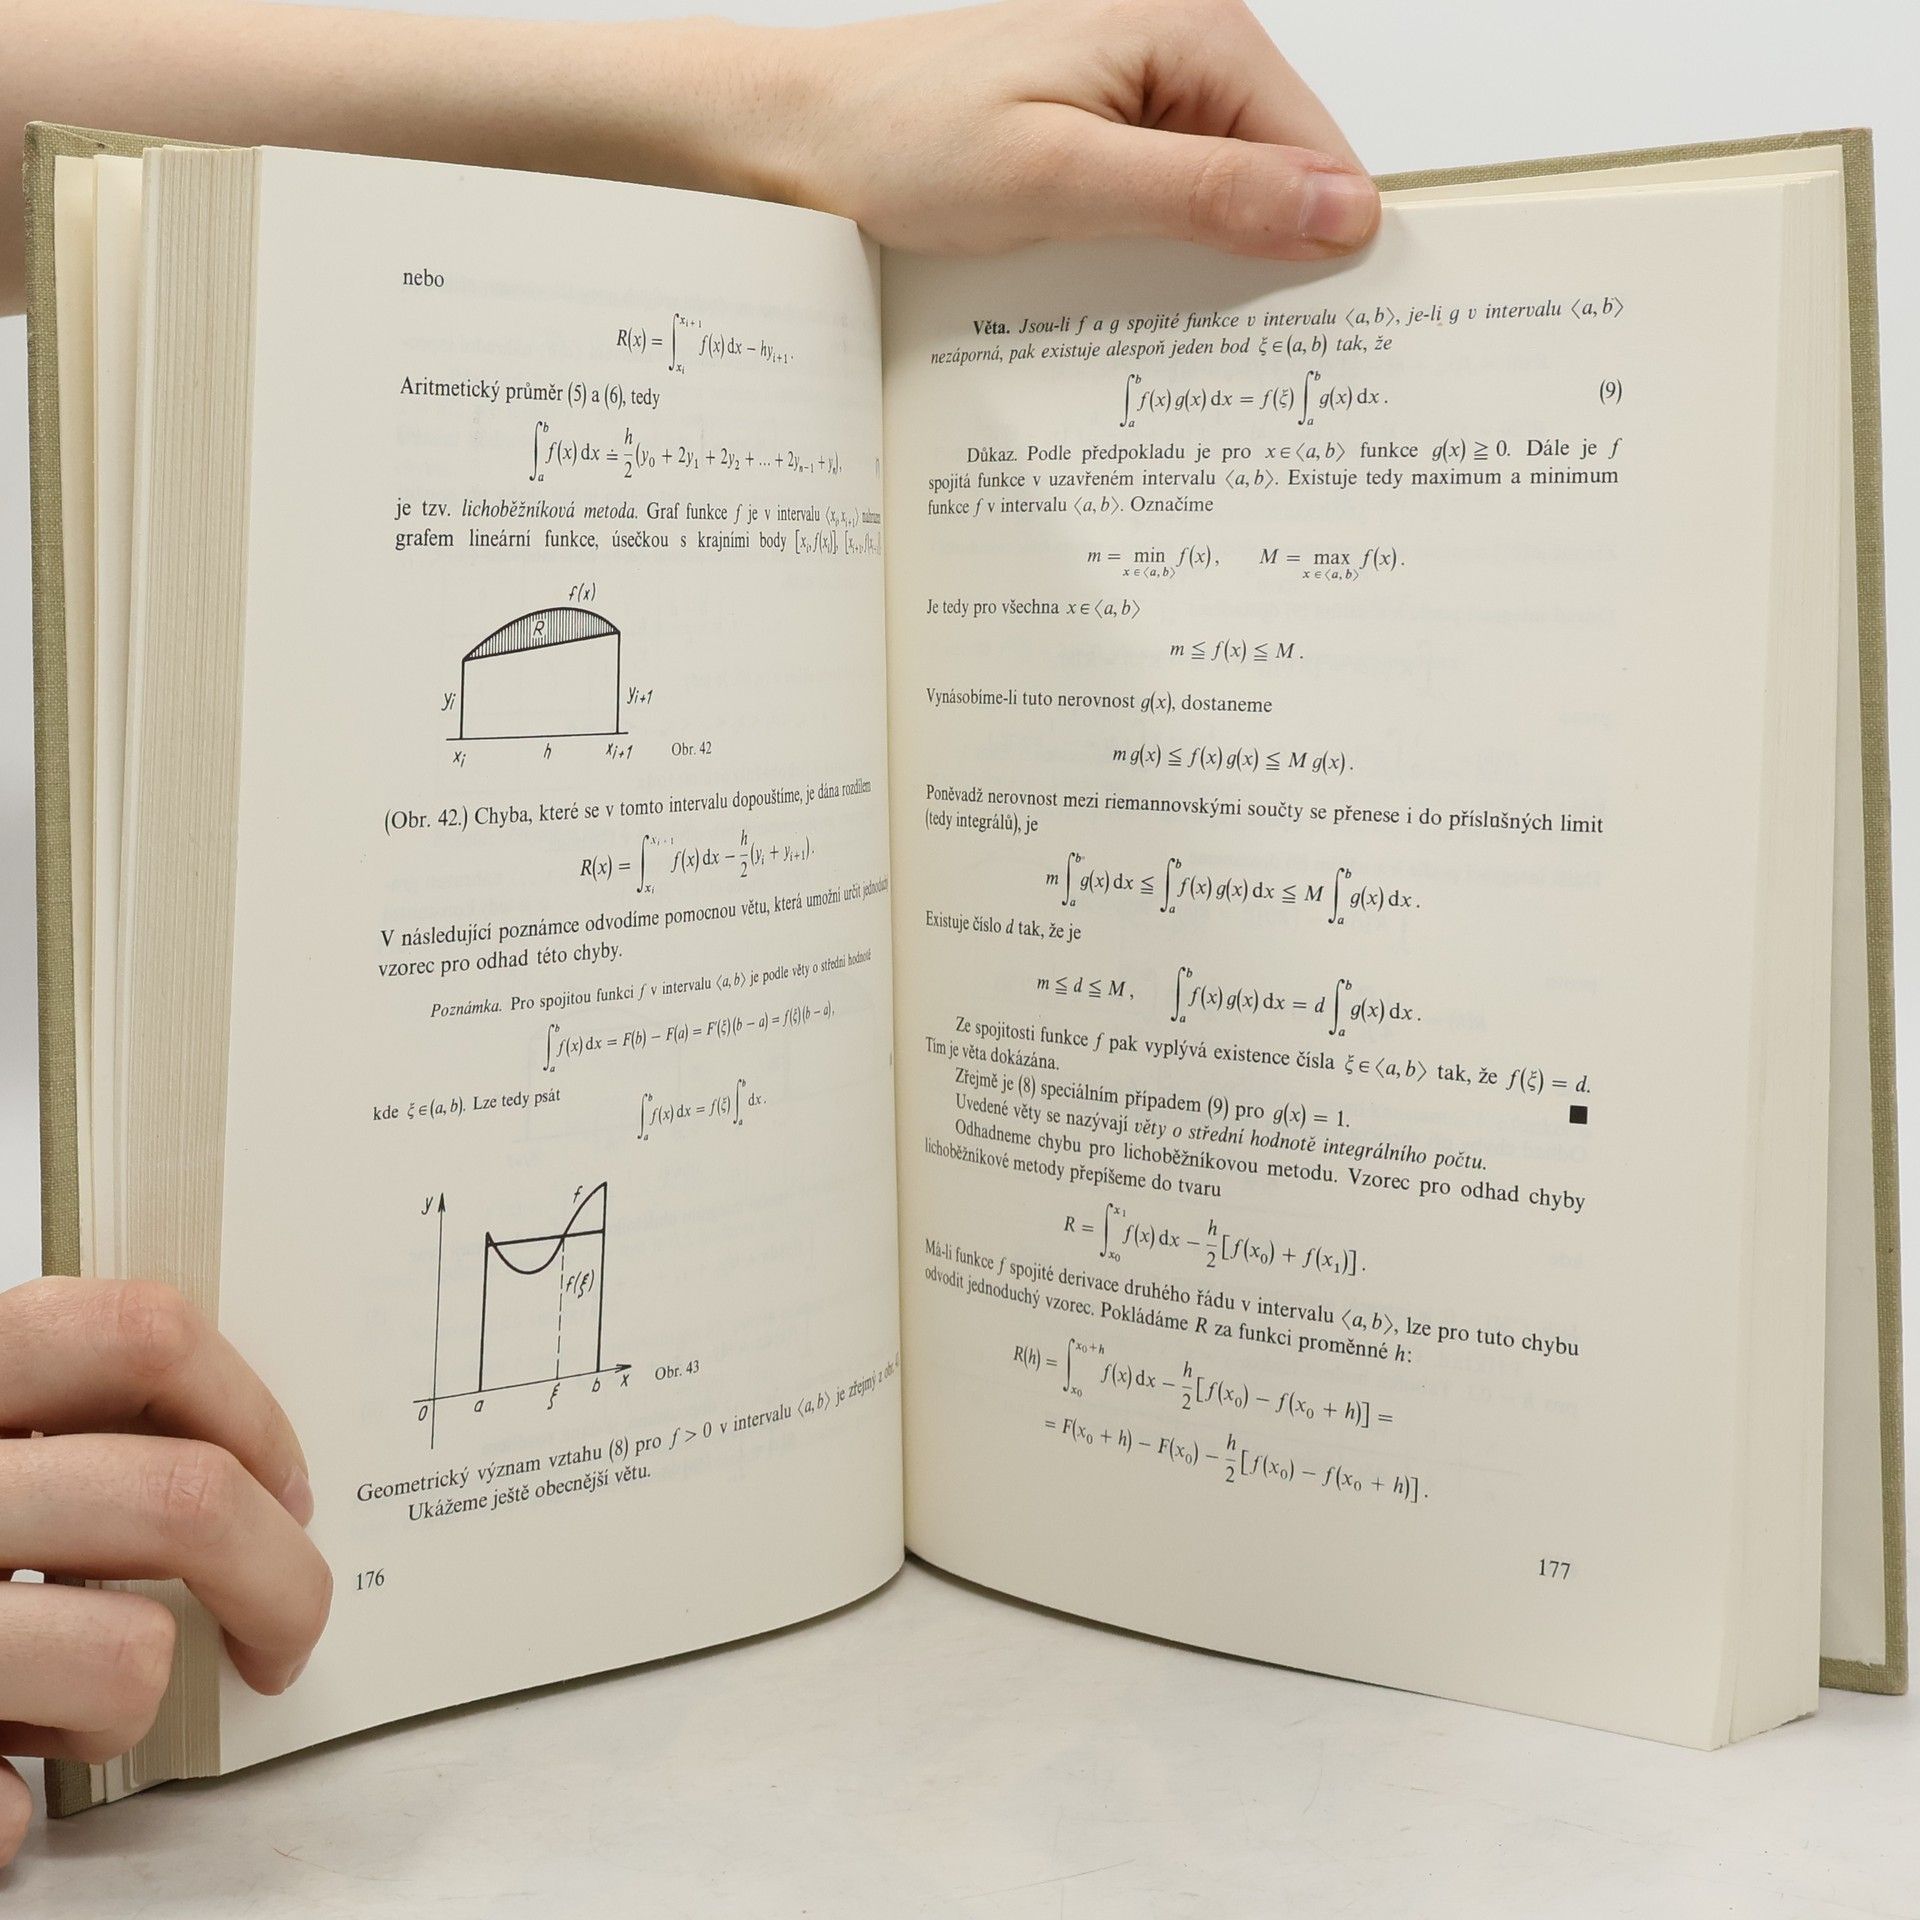 nebo
R(x) = ∫_{x_i}^{x_{i+1}} f(x) dx − hy_{i+1}.
Aritmetický průměr (5) a (6), tedy
∫_a^b f(x) dx ≐ h/2 (y_0 + 2y_1 + 2y_2 + ... + 2y_{n−1} + y_n),
je tzv. lichoběžníková metoda. Graf funkce f je v intervalu ⟨x_i, x_{i+1}⟩
grafem lineární funkce, úsečkou s krajními body [x_i, f(x_i)],
f(x)
R
y_i
y_{i+1}
x_i h x_{i+1} Obr. 42
(Obr. 42.) Chyba, které se v tomto intervalu dopouštíme, je dána rozdílem
R(x) = ∫_{x_i}^{x_{i+1}} f(x) dx − h/2 (y_i + y_{i+1}).
V následující poznámce odvodíme pomocnou větu, která umožní určit jednoduchý
vzorec pro odhad této chyby.
Poznámka. Pro spojitou funkci f v intervalu ⟨a, b⟩ je podle věty o střední hodnotě
∫_a^b f(x) dx = F(b) − F(a) = F′(ξ)(b − a) = f(ξ)(b − a),
kde ξ∈(a, b). Lze tedy psát
∫_a^b f(x) dx = f(ξ) ∫_a^b dx.
y
f
f(ξ)
0 a ξ b x Obr. 43
Geometrický význam vztahu (8) pro f > 0 v intervalu ⟨a, b⟩ je zřejmý z obr.
Ukážeme ještě obecnější větu.
176
Věta. Jsou-li f a g spojité funkce v intervalu ⟨a, b⟩, je-li g v intervalu ⟨a, b⟩
nezáporná, pak existuje alespoň jeden bod ξ∈(a, b) tak, že
∫_a^b f(x) g(x) dx = f(ξ) ∫_a^b g(x) dx. (9)
Důkaz. Podle předpokladu je pro x∈⟨a, b⟩ funkce g(x) ≧ 0. Dále je f
spojitá funkce v uzavřeném intervalu ⟨a, b⟩. Existuje tedy maximum a minimum
funkce f v intervalu ⟨a, b⟩. Označíme
m = min_{x∈⟨a, b⟩} f(x), M = max_{x∈⟨a, b⟩} f(x).
Je tedy pro všechna x∈⟨a, b⟩
m ≦ f(x) ≦ M.
Vynásobíme-li tuto nerovnost g(x), dostaneme
m g(x) ≦ f(x) g(x) ≦ M g(x).
Poněvadž nerovnost mezi riemannovskými součty se přenese i do příslušných limit
(tedy integrálů), je
m ∫_a^b g(x) dx ≦ ∫_a^b f(x) g(x) dx ≦ M ∫_a^b g(x) dx.
Existuje číslo d tak, že je
m ≦ d ≦ M, ∫_a^b f(x) g(x) dx = d ∫_a^b g(x) dx.
Ze spojitosti funkce f pak vyplývá existence čísla ξ∈⟨a, b⟩ tak, že f(ξ) = d.
Tím je věta dokázána. ■
Zřejmě je (8) speciálním případem (9) pro g(x) = 1.
Uvedené věty se nazývají věty o střední hodnotě integrálního počtu.
Odhadneme chybu pro lichoběžníkovou metodu. Vzorec pro odhad chyby
lichoběžníkové metody přepíšeme do tvaru
R = ∫_{x_0}^{x_1} f(x) dx − h/2 [f(x_0) + f(x_1)].
Má-li funkce f spojité derivace druhého řádu v intervalu ⟨a, b⟩, lze pro tuto chybu
odvodit jednoduchý vzorec. Pokládáme R za funkci proměnné h:
R(h) = ∫_{x_0}^{x_0+h} f(x) dx − h/2 [f(x_0) − f(x_0 + h)] =
= F(x_0 + h) − F(x_0) − h/2 [f(x_0) − f(x_0 + h)].
177